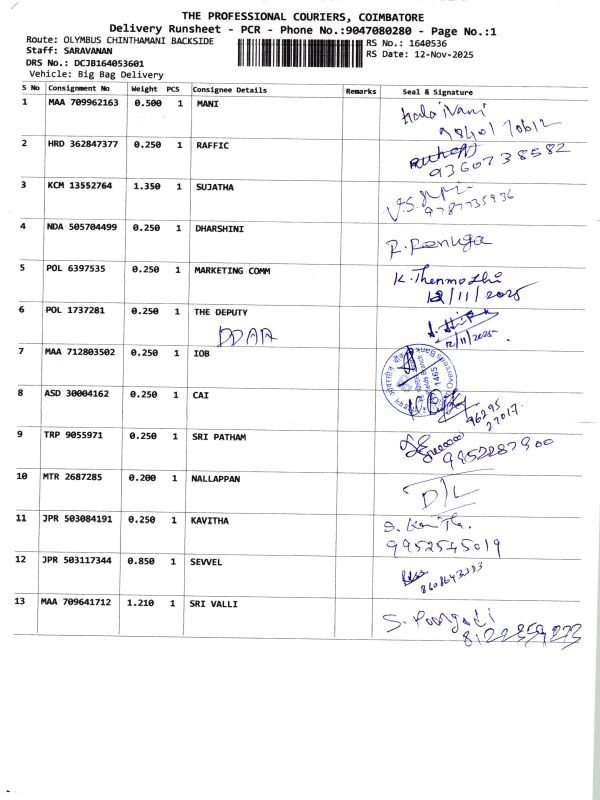 THE PROFESSIONAL COURIERS, COIMBATORE
Delivery Runsheet - PCR - Phone No.:9047080280 - Page No.:1
Route: OLYMBUS CHINTHAMANI BACKSIDE
RS No.: 1640536
Staff: SARAVANAN
RS Date: 12-Nov-2025
DRS No.: DCJB164053601
Vehicle: Big Bag Delivery
S No Consignment No Weight PCS Consignee Details Remarks Seal & Signature
1 MAA 709962163 0.500 1 MANI
2 HRD 362847377 0.250 1 RAFFIC
9360738582
3 KCM 13552764 1.350 1 SUJATHA
9787735936
4 NDA 505704499 0.250 1 DHARSHINI
R. Renuga
5 POL 6397535 0.250 1 MARKETING COMM
K. Thenmozhi
12/11/2025
6 POL 1737281 0.250 1 THE DEPUTY
DDAA
12/11/2025
7 MAA 712803502 0.250 1 IOB
1465
8 ASD 30004162 0.250 1 CAI
96295
27017
9 TRP 9055971 0.250 1 SRI PATHAM
9952287900
10 MTR 2687285 0.200 1 NALLAPPAN
D/L
11 JPR 503084191 0.250 1 KAVITHA
9952545019
12 JPR 503117344 0.850 1 SEVVEL
8608643333
13 MAA 709641712 1.210 1 SRI VALLI
8122859273